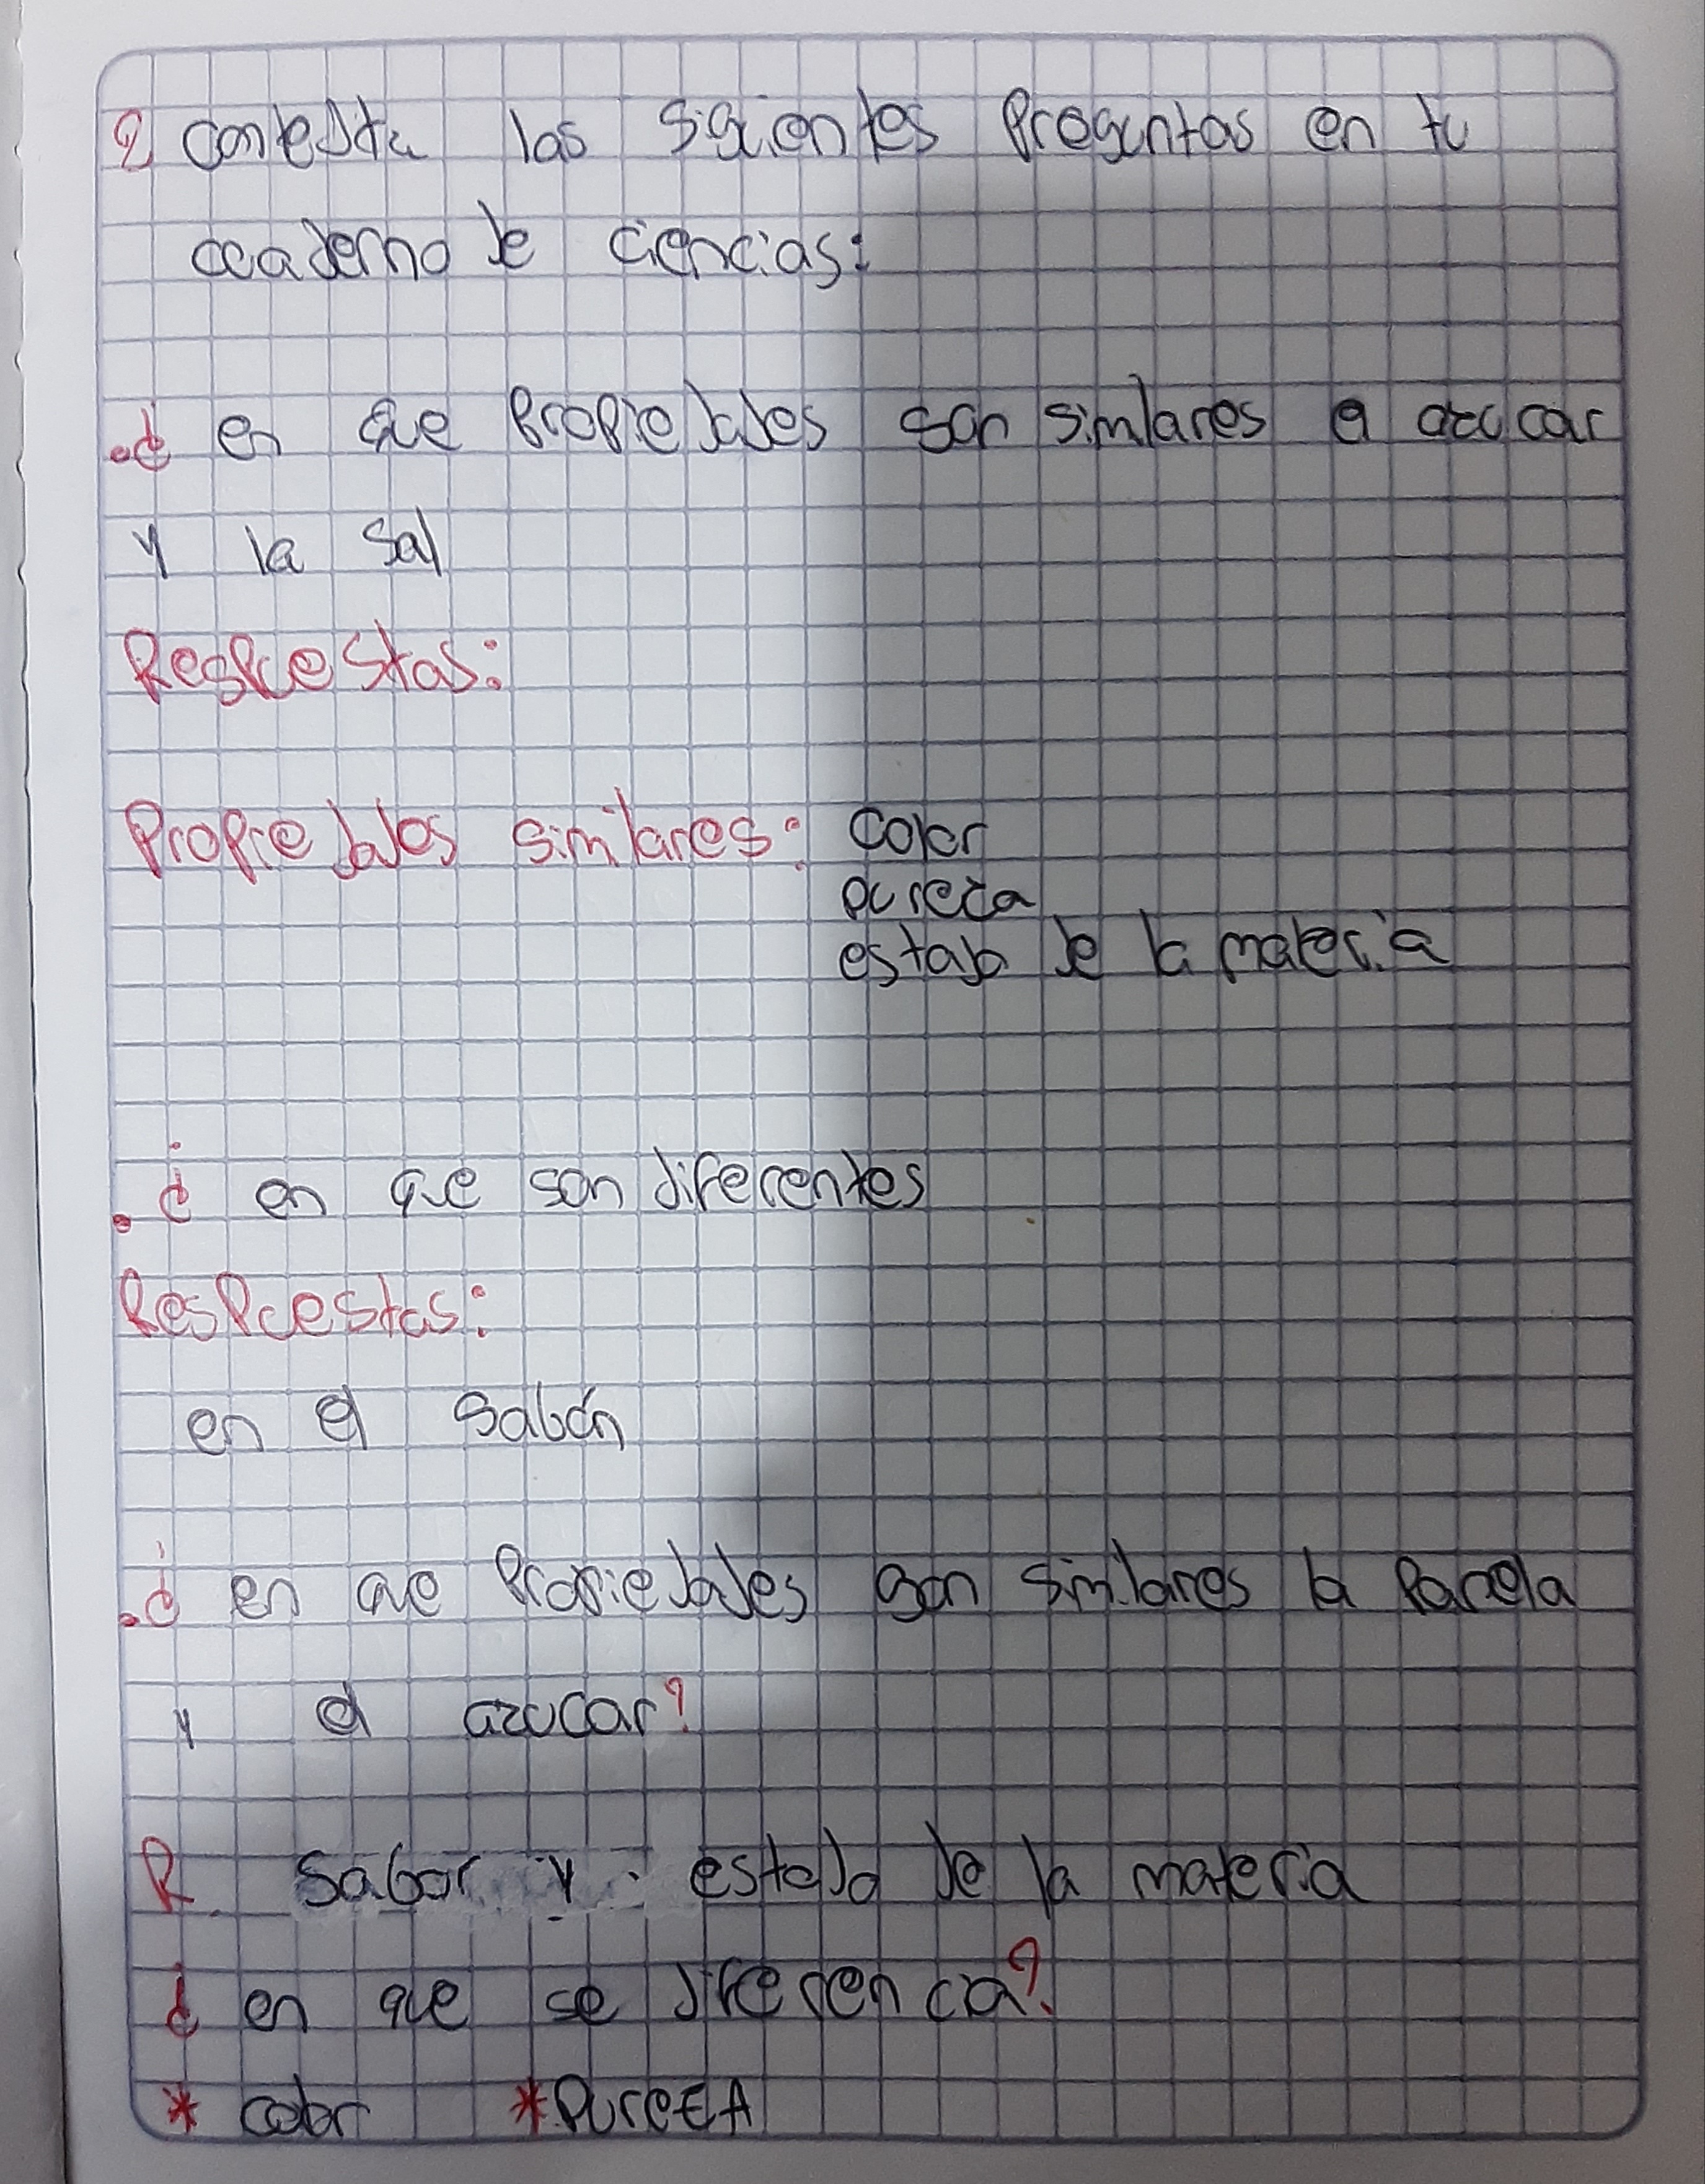 2 contesta las sigientes Preguntas en tu
cuaderno de ciencias:
.¿ en que Propiedades son similares el azucar
y la sal
Respuestas:
Propiedades similares: color
pureza
estado de la materia
.¿ en que son diferentes
Respuestas:
en el sabón
.¿ en que Propiedades son similares la Panela
y el azucar?
R. Sabor y estado de la materia
¿ en que se diferencia?
* color * PUreEA